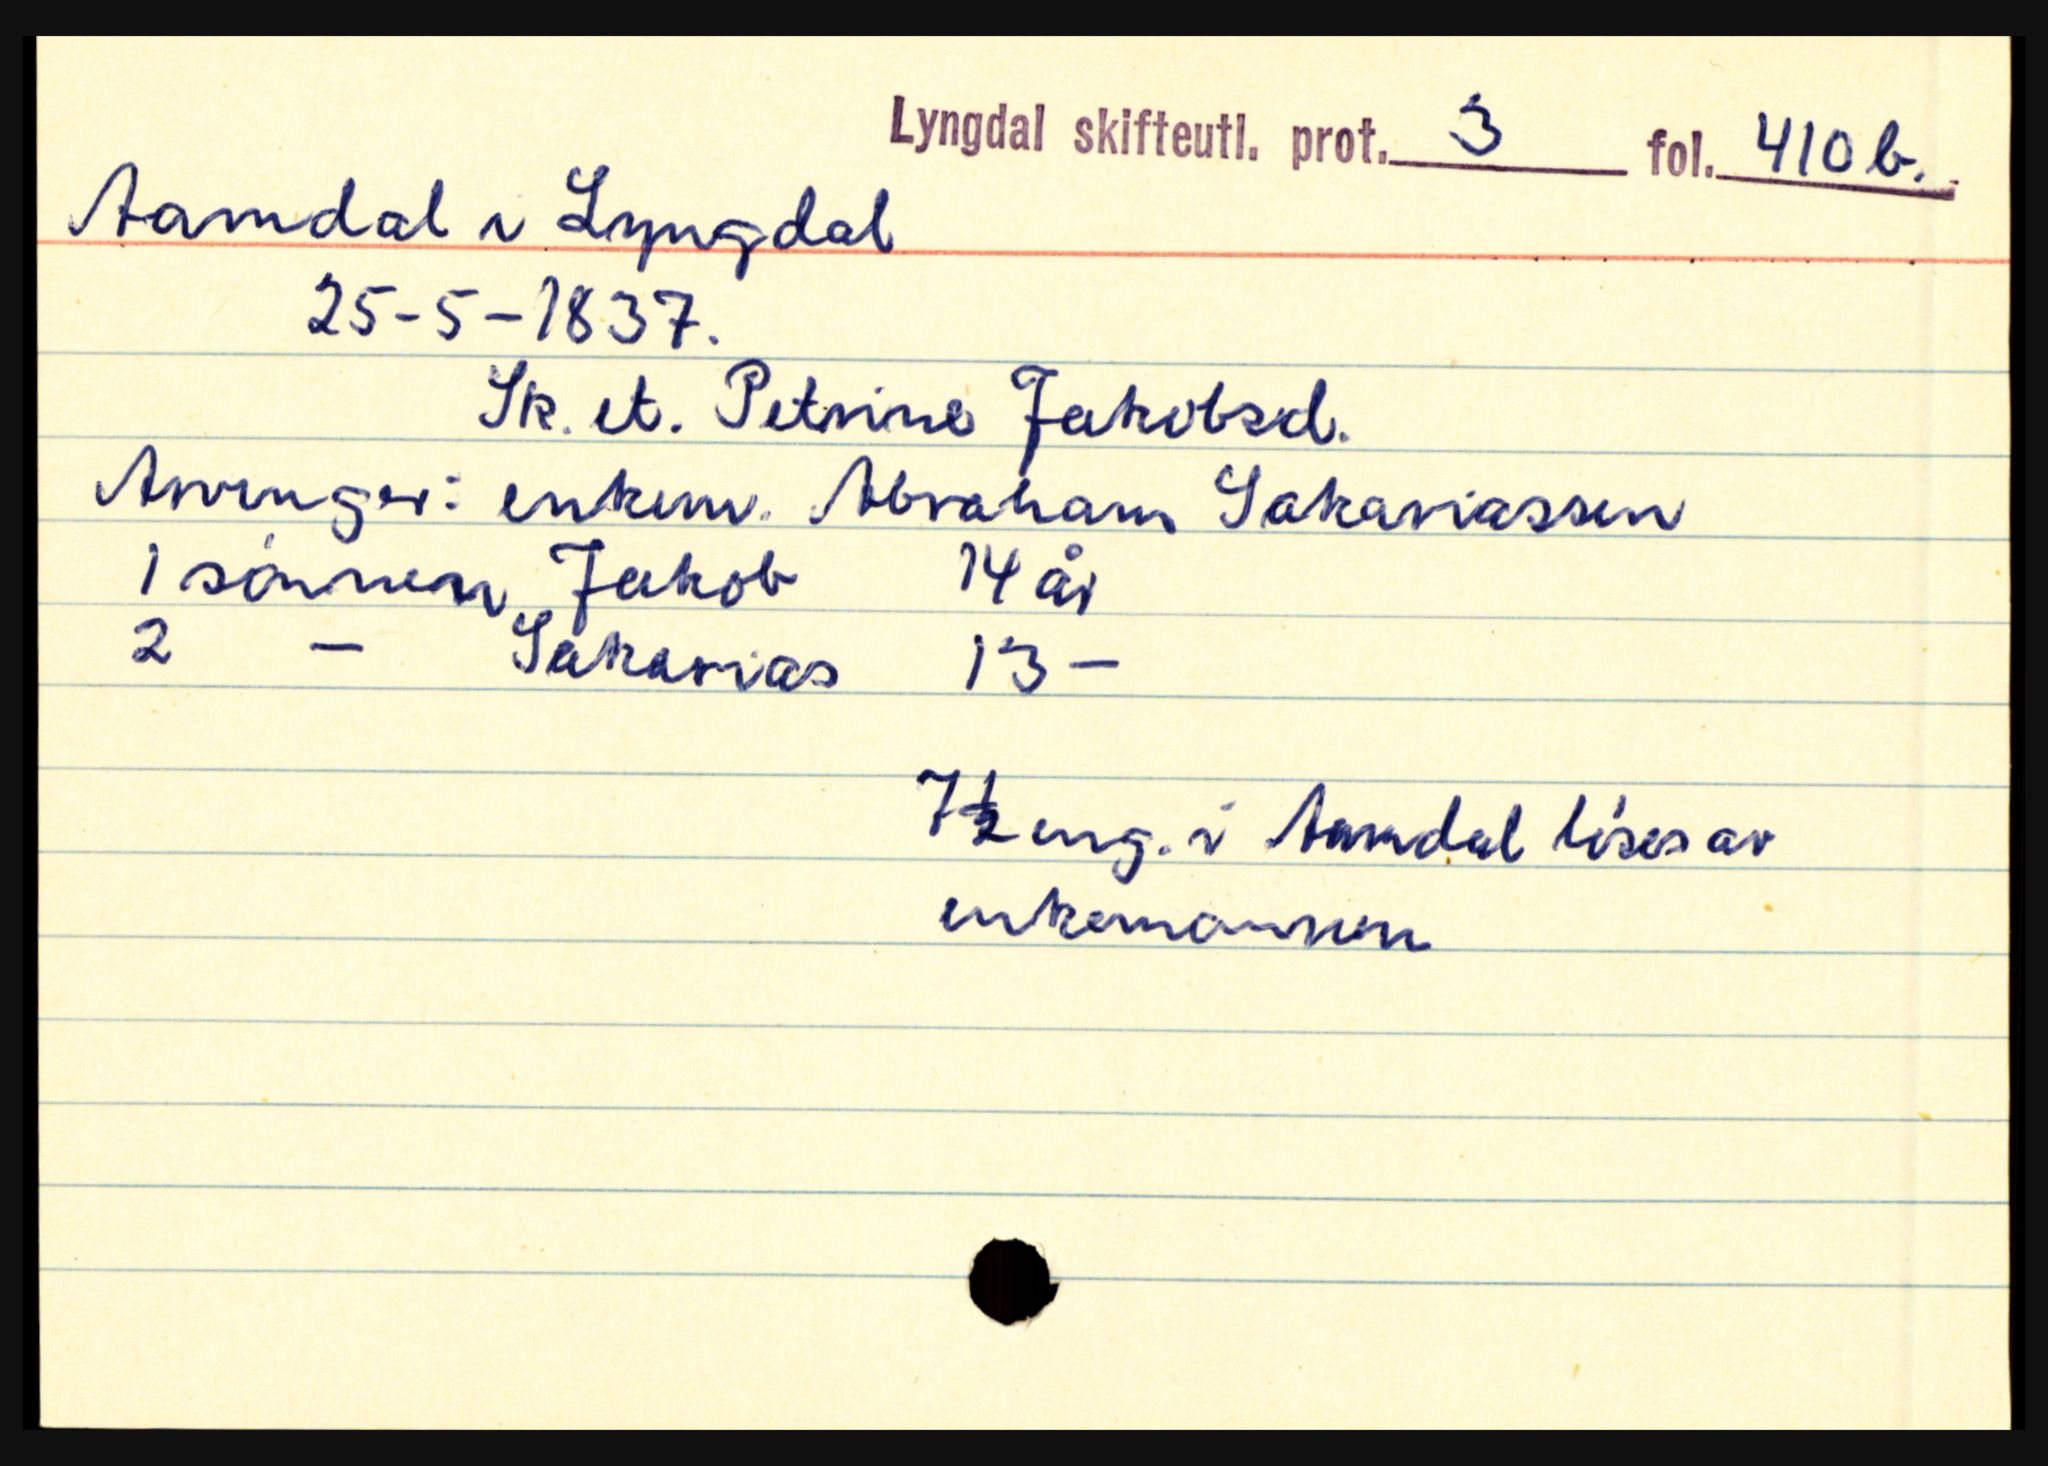 Lyngdal skifteutl. prot. 3 fol. 410b.
Aamdal i Lyngdal
25-5-1837.
Sk. et. Petrine Jakobsd.
Arvinger: enkem. Abraham Sakariassen
1 sønnen Jakob 14 år
2 — Sakarias 13 —
7½ eng. i Aamdal löses av
enkemannen